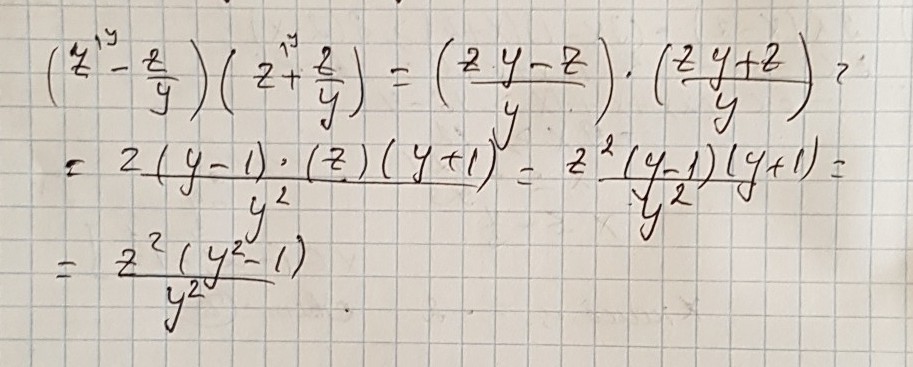 (z^{1y} - \frac{z}{y})(z^{1y} + \frac{z}{y}) = (\frac{zy-z}{y}) \cdot (\frac{zy+z}{y}) =
= \frac{z(y-1) \cdot (z)(y+1)}{y^2} = \frac{z^2(y-1)(y+1)}{y^2} =
= \frac{z^2(y^2-1)}{y^2}